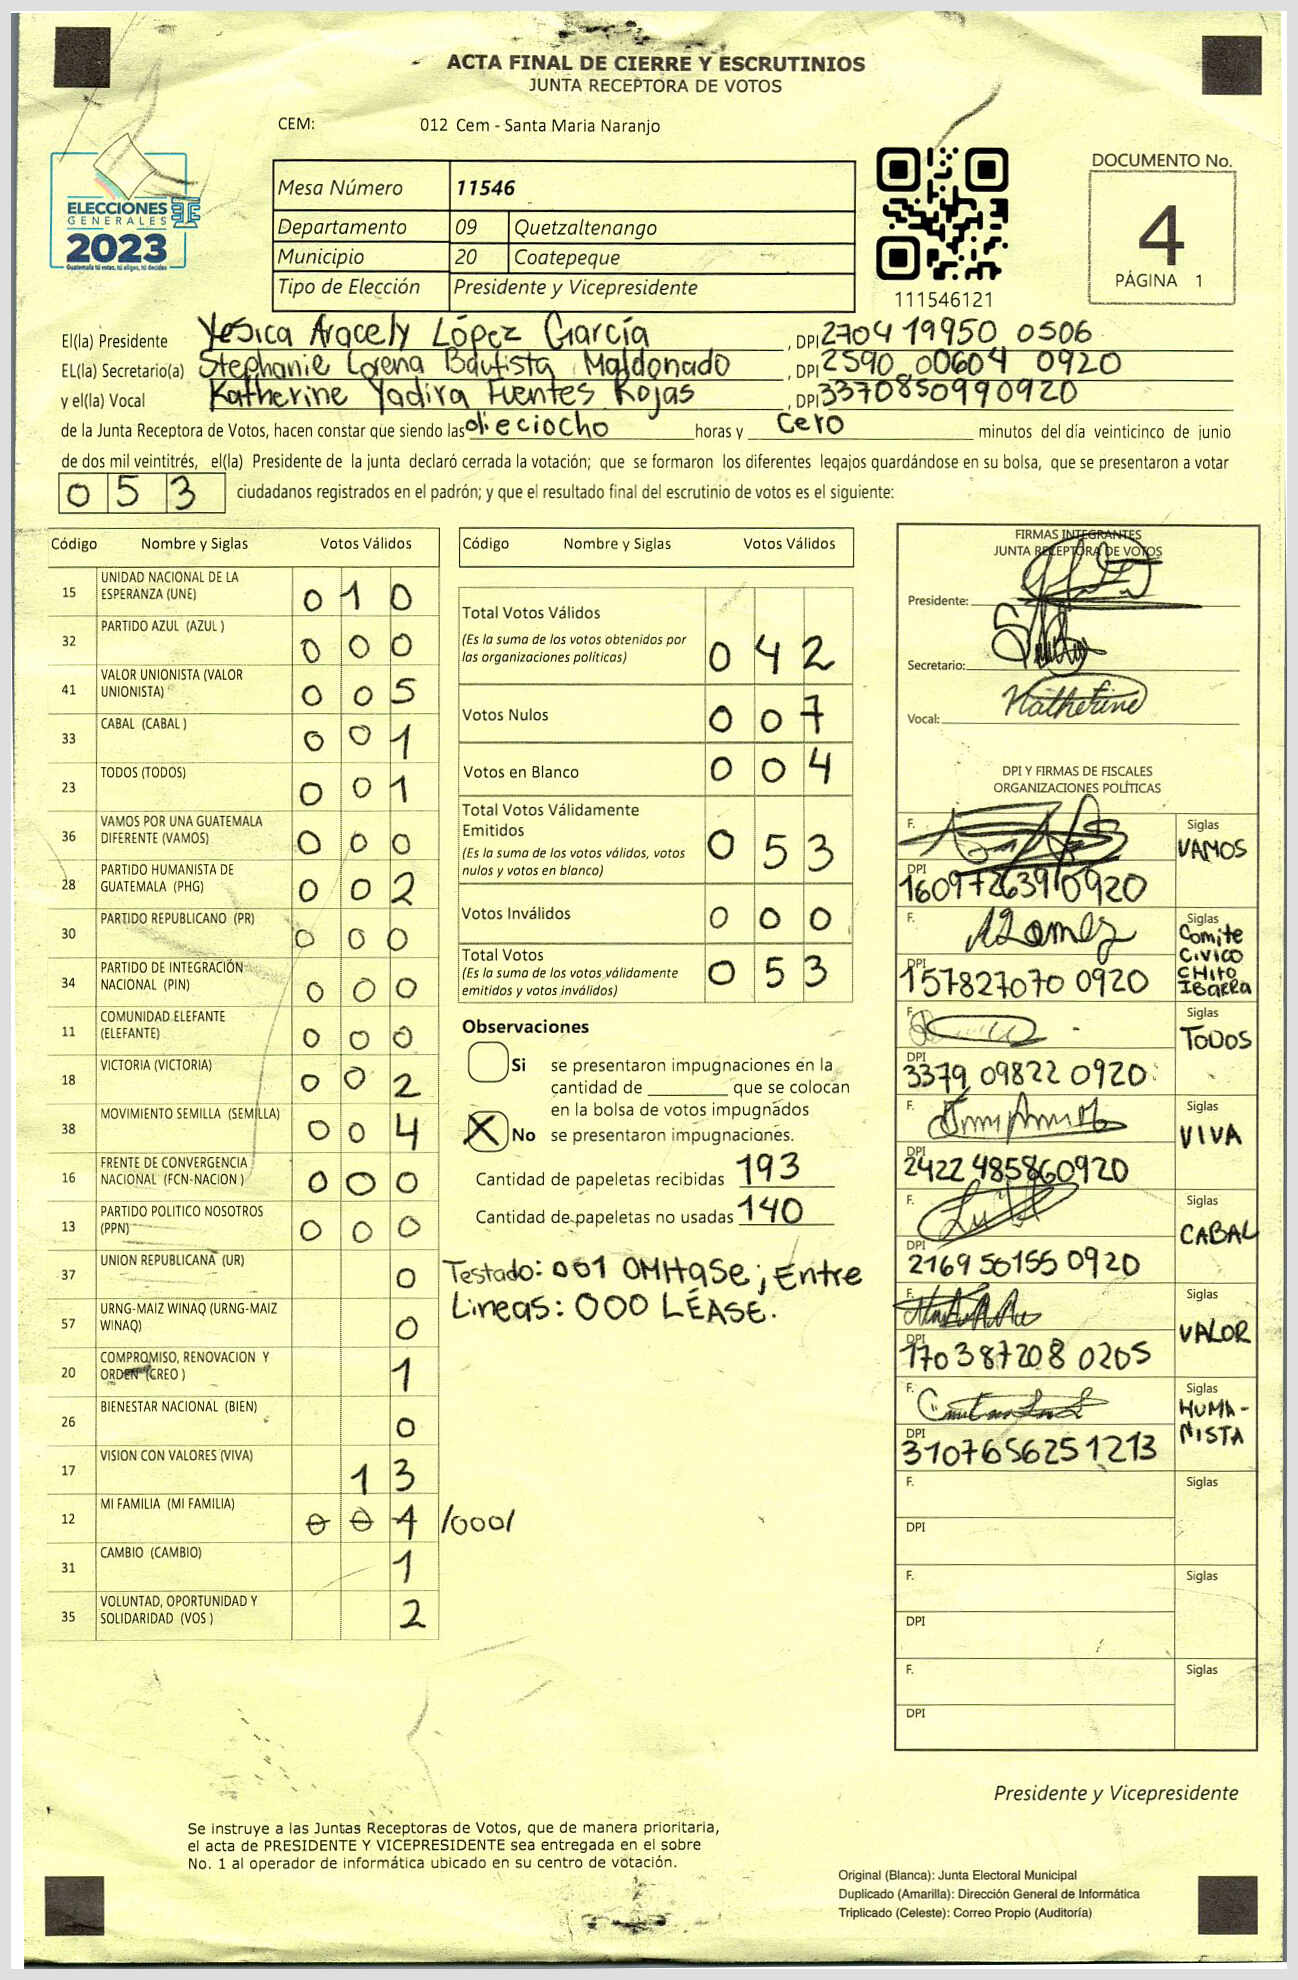 ACTA FINAL DE CIERRE Y ESCRUTINIOS
JUNTA RECEPTORA DE VOTOS
CEM: 012 Cem - Santa Maria Naranjo
ELECCIONES
GENERALES
2023
Guatemala tú votas, tú eliges, tú decides
Mesa Número 11546
Departamento 09 Quetzaltenango
Municipio 20 Coatepeque
Tipo de Elección Presidente y Vicepresidente
111546121
DOCUMENTO No.
4
PÁGINA 1
El(la) Presidente Yesica Aracely López García, DPI 2704 19950 0506
EL(la) Secretario(a) Stephanie Lorena Bautista Maldonado, DPI 2590 00604 0920
y el(la) Vocal Katherine Yadira Fuentes Rojas, DPI 3370850990920
de la Junta Receptora de Votos, hacen constar que siendo las dieciocho horas y cero minutos del día veinticinco de junio
de dos mil veintitrés, el(la) Presidente de la junta declaró cerrada la votación; que se formaron los diferentes legajos guardándose en su bolsa, que se presentaron a votar
053 ciudadanos registrados en el padrón; y que el resultado final del escrutinio de votos es el siguiente:
Código Nombre y Siglas Votos Válidos
15 UNIDAD NACIONAL DE LA ESPERANZA (UNE) 0 1 0
32 PARTIDO AZUL (AZUL ) 0 0 0
41 VALOR UNIONISTA (VALOR UNIONISTA) 0 0 5
33 CABAL (CABAL ) 0 0 1
23 TODOS (TODOS) 0 0 1
36 VAMOS POR UNA GUATEMALA DIFERENTE (VAMOS) 0 0 0
28 PARTIDO HUMANISTA DE GUATEMALA (PHG) 0 0 2
30 PARTIDO REPUBLICANO (PR) 0 0 0
34 PARTIDO DE INTEGRACIÓN NACIONAL (PIN) 0 0 0
11 COMUNIDAD ELEFANTE (ELEFANTE) 0 0 0
18 VICTORIA (VICTORIA) 0 0 2
38 MOVIMIENTO SEMILLA (SEMILLA) 0 0 4
16 FRENTE DE CONVERGENCIA NACIONAL (FCN-NACION ) 0 0 0
13 PARTIDO POLITICO NOSOTROS (PPN) 0 0 0
37 UNION REPUBLICANA (UR) 0
57 URNG-MAIZ WINAQ (URNG-MAIZ WINAQ) 0
20 COMPROMISO, RENOVACION Y ORDEN (CREO ) 1
26 BIENESTAR NACIONAL (BIEN) 0
17 VISION CON VALORES (VIVA) 1 3
12 MI FAMILIA (MI FAMILIA) 0 0 1 /000/
31 CAMBIO (CAMBIO) 1
35 VOLUNTAD, OPORTUNIDAD Y SOLIDARIDAD (VOS ) 2
Código Nombre y Siglas Votos Válidos
Total Votos Válidos
(Es la suma de los votos obtenidos por las organizaciones políticas) 0 4 2
Votos Nulos 0 0 7
Votos en Blanco 0 0 4
Total Votos Válidamente Emitidos
(Es la suma de los votos válidos, votos nulos y votos en blanco) 0 5 3
Votos Inválidos 0 0 0
Total Votos
(Es la suma de los votos válidamente emitidos y votos inválidos) 0 5 3
Observaciones
Si se presentaron impugnaciones en la
cantidad de ________ que se colocan
en la bolsa de votos impugnados
X No se presentaron impugnaciones.
Cantidad de papeletas recibidas 193
Cantidad de papeletas no usadas 140
Testado: 001 OMITASE; Entre
Lineas: 000 LÉASE.
FIRMAS INTEGRANTES
JUNTA RECEPTORA DE VOTOS
Presidente:
Secretario:
Vocal: Katherine
DPI Y FIRMAS DE FISCALES
ORGANIZACIONES POLÍTICAS
F. Siglas VAMOS
DPI 1609726390920
F. Siglas Comite CIVICO CHITO IBARRA
DPI 157827070 0920
F. Siglas TODOS
DPI 3379 09822 0920
F. Siglas VIVA
DPI 2422 485860920
F. Siglas CABAL
DPI 2169 50155 0920
F. Siglas VALOR
DPI 170387208 0205
F. Siglas HUMA-NISTA
DPI 3107656251213
F. Siglas
DPI
F. Siglas
DPI
F. Siglas
DPI
Presidente y Vicepresidente
Se instruye a las Juntas Receptoras de Votos, que de manera prioritaria,
el acta de PRESIDENTE Y VICEPRESIDENTE sea entregada en el sobre
No. 1 al operador de informática ubicado en su centro de votación.
Original (Blanca): Junta Electoral Municipal
Duplicado (Amarilla): Dirección General de Informática
Triplicado (Celeste): Correo Propio (Auditoría)